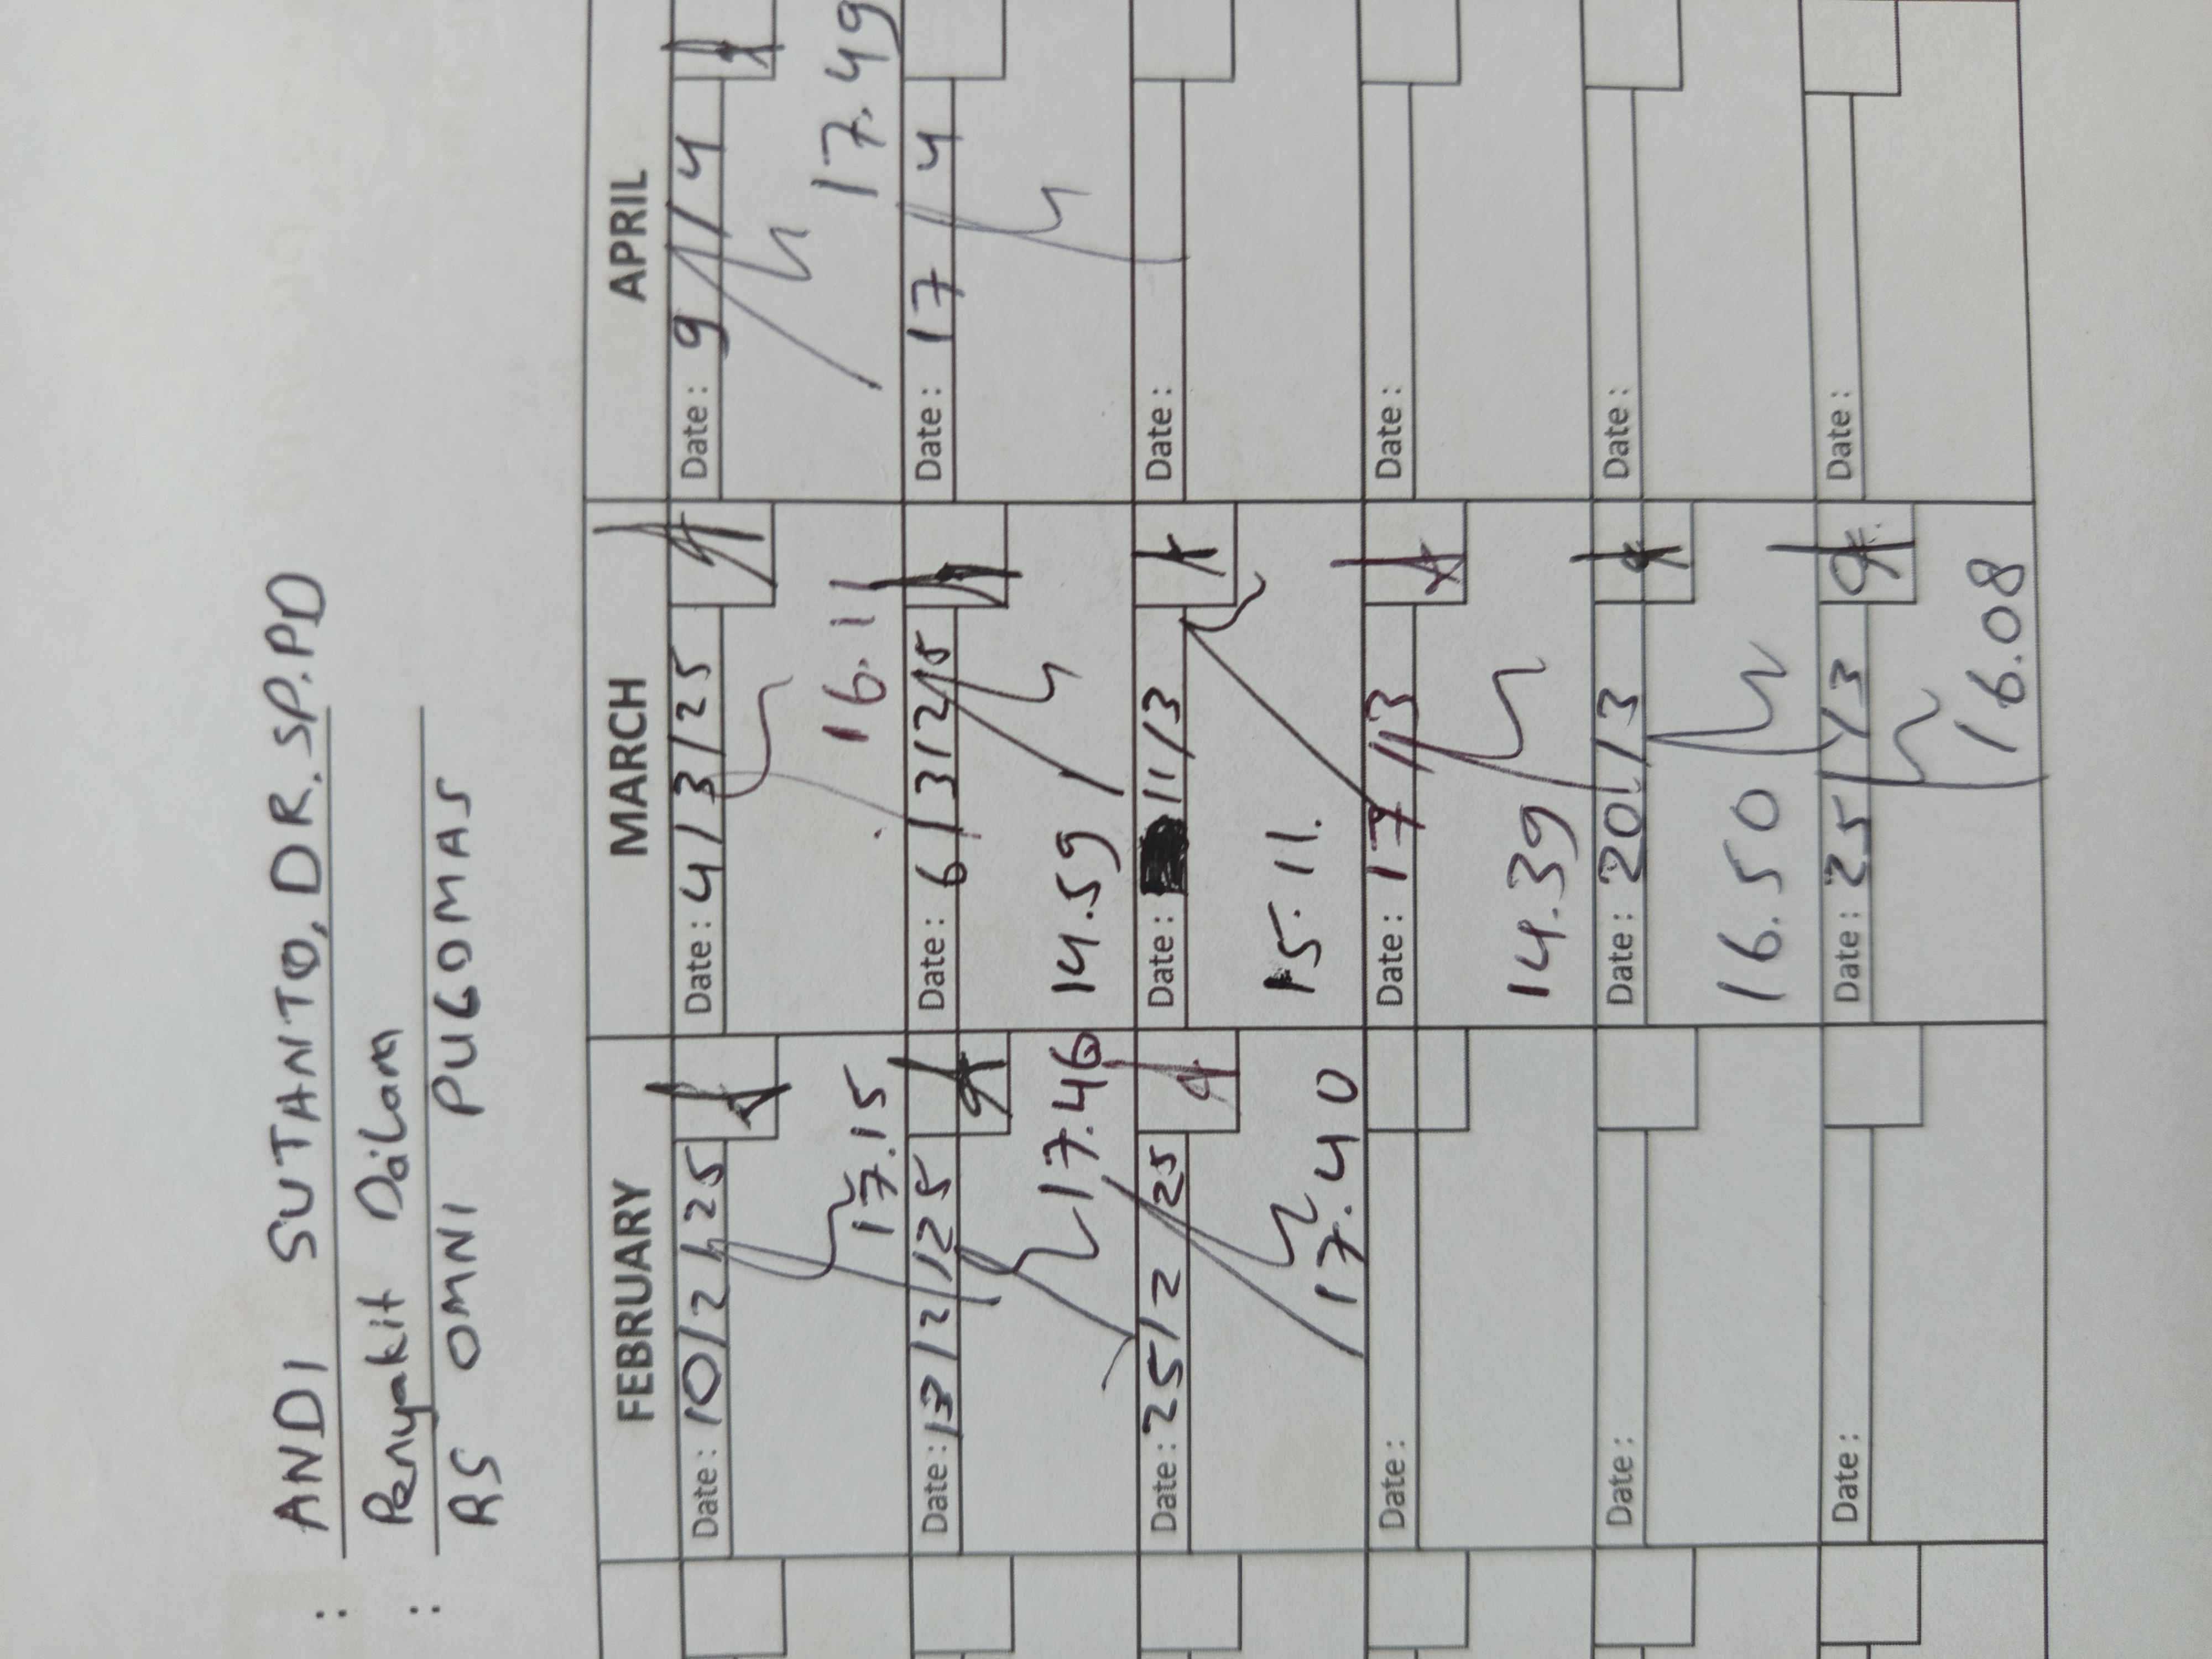 : ANDI SUTANTO, DR. SP.PD
: Penyakit Dalam
RS OMNI PULOMAS
FEBRUARY MARCH APRIL
Date : 10/2/25 Date : 4/3/25 Date : 9/4
17.15 16.11 17.49
Date : 13/2/25 Date : 6/3/25 Date : 17 4
17.46 14.59
Date : 25/2 25 Date : 11/3 Date :
17.40 15.11.
Date : Date : 17/3 Date :
14.39
Date : Date : 20/3 Date :
16.50
Date : Date : 25/3 Date :
16.08